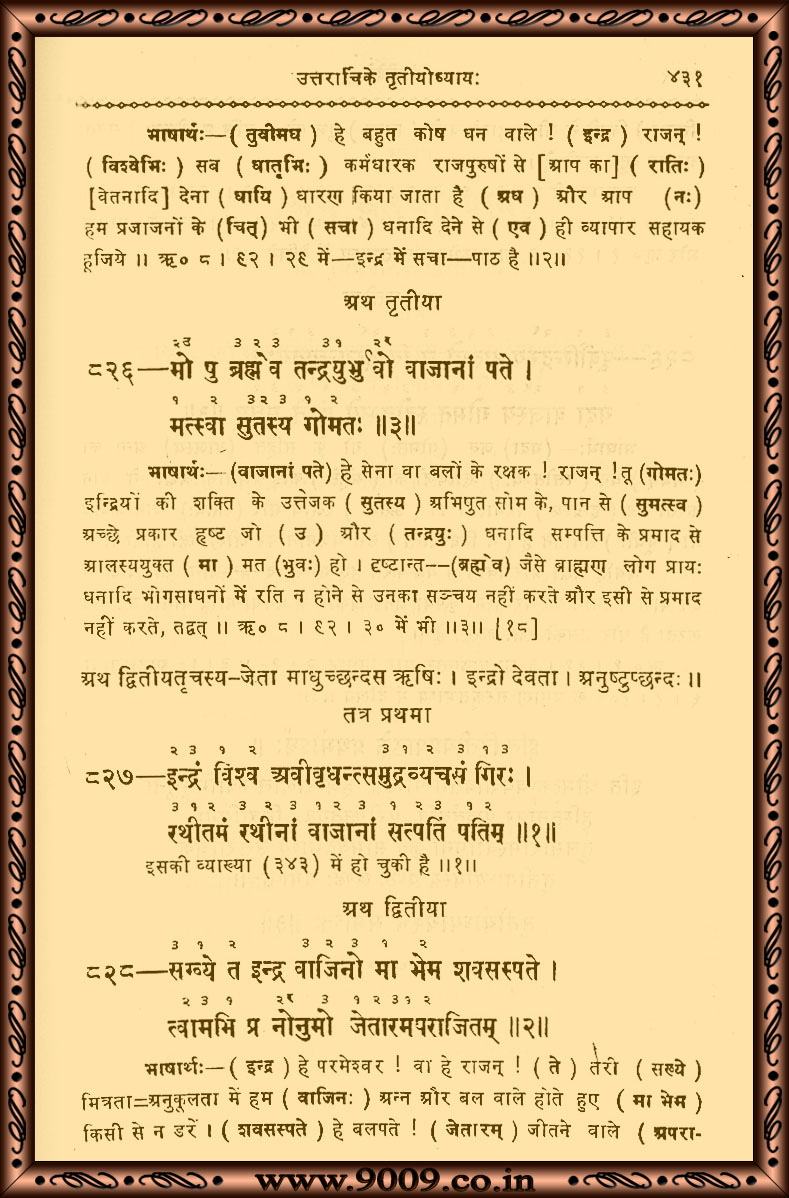 उत्तरार्चिके तृतीयोध्यायः ४३१
भाषार्थः—( तुवीमघ ) हे बहुत कोष धन वाले ! ( इन्द्र ) राजन् !
( विश्वेभिः ) सब ( धातृभिः ) कर्मधारक राजपुरुषों से [आप का] ( रातिः )
[वेतनादि] देना ( धायि ) धारण किया जाता है ( अध ) और आप (नः)
हम प्रजाजनों के (चित्) भी ( सचा ) धनादि देने से ( एव ) ही व्यापार सहायक
हूजिये ॥ ऋ० ८ । ९२ । २९ में—इन्द्र में सचा—पाठ है ॥२॥
अथ तृतीया
८२६—मो षु ब्रह्मेव तन्द्रयुर्भुवो वाजानां पते ।
१ २ ३२३ १ २
मत्स्वा सुतस्य गोमतः ॥३॥
भाषार्थः—(वाजानां पते) हे सेना वा बलों के रक्षक ! राजन् ! तू (गोमतः)
इन्द्रियों की शक्ति के उत्तेजक ( सुतस्य ) अभिषुत सोम के, पान से ( सुमत्स्व )
अच्छे प्रकार हृष्ट जो ( उ ) और ( तन्द्रयुः ) धनादि सम्पत्ति के प्रमाद से
आलस्ययुक्त ( मा ) मत (भुवः) हो । दृष्टान्त--(ब्रह्मेव) जैसे ब्राह्मण लोग प्रायः
धनादि भोगसाधनों में रति न होने से उनका सञ्चय नहीं करते और इसी से प्रमाद
नहीं करते, तद्वत् ॥ ऋ० ८ । ९२ । ३० में भी ॥३॥ [१८]
अथ द्वितीयतृचस्य-जेता माधुच्छन्दस ऋषिः । इन्द्रो देवता । अनुष्टुप्छन्दः ॥
तत्र प्रथमा
२ ३ १ २ ३ १ २ ३ १ ३
८२७—इन्द्रं विश्व अवीवृधन्त्समुद्रव्यचसं गिरः ।
३ १ २ ३ २ ३ १ २ ३ १ २ ३ १ २
रथीतमं रथीनां वाजानां सत्पतिं पतिम् ॥१॥
इसकी व्याख्या (३४३) में हो चुकी है ॥१॥
अथ द्वितीया
३ १ २ ३ २ ३ १ २
८२८—सख्ये त इन्द्र वाजिनो मा भेम शवसस्पते ।
२ ३ १ २र ३ १ २ ३१ २
त्वामभि प्र नोनुमो जेतारमपराजितम् ॥२॥
भाषार्थः—( इन्द्र ) हे परमेश्वर ! वा हे राजन् ! ( ते ) तेरी ( सख्ये )
मित्रता=अनुकूलता में हम ( वाजिनः ) अन्न और बल वाले होते हुए ( मा भेम )
किसी से न डरें । ( शवसस्पते ) हे बलपते ! ( जेतारम् ) जीतने वाले ( अपरा-
www.9009.co.in